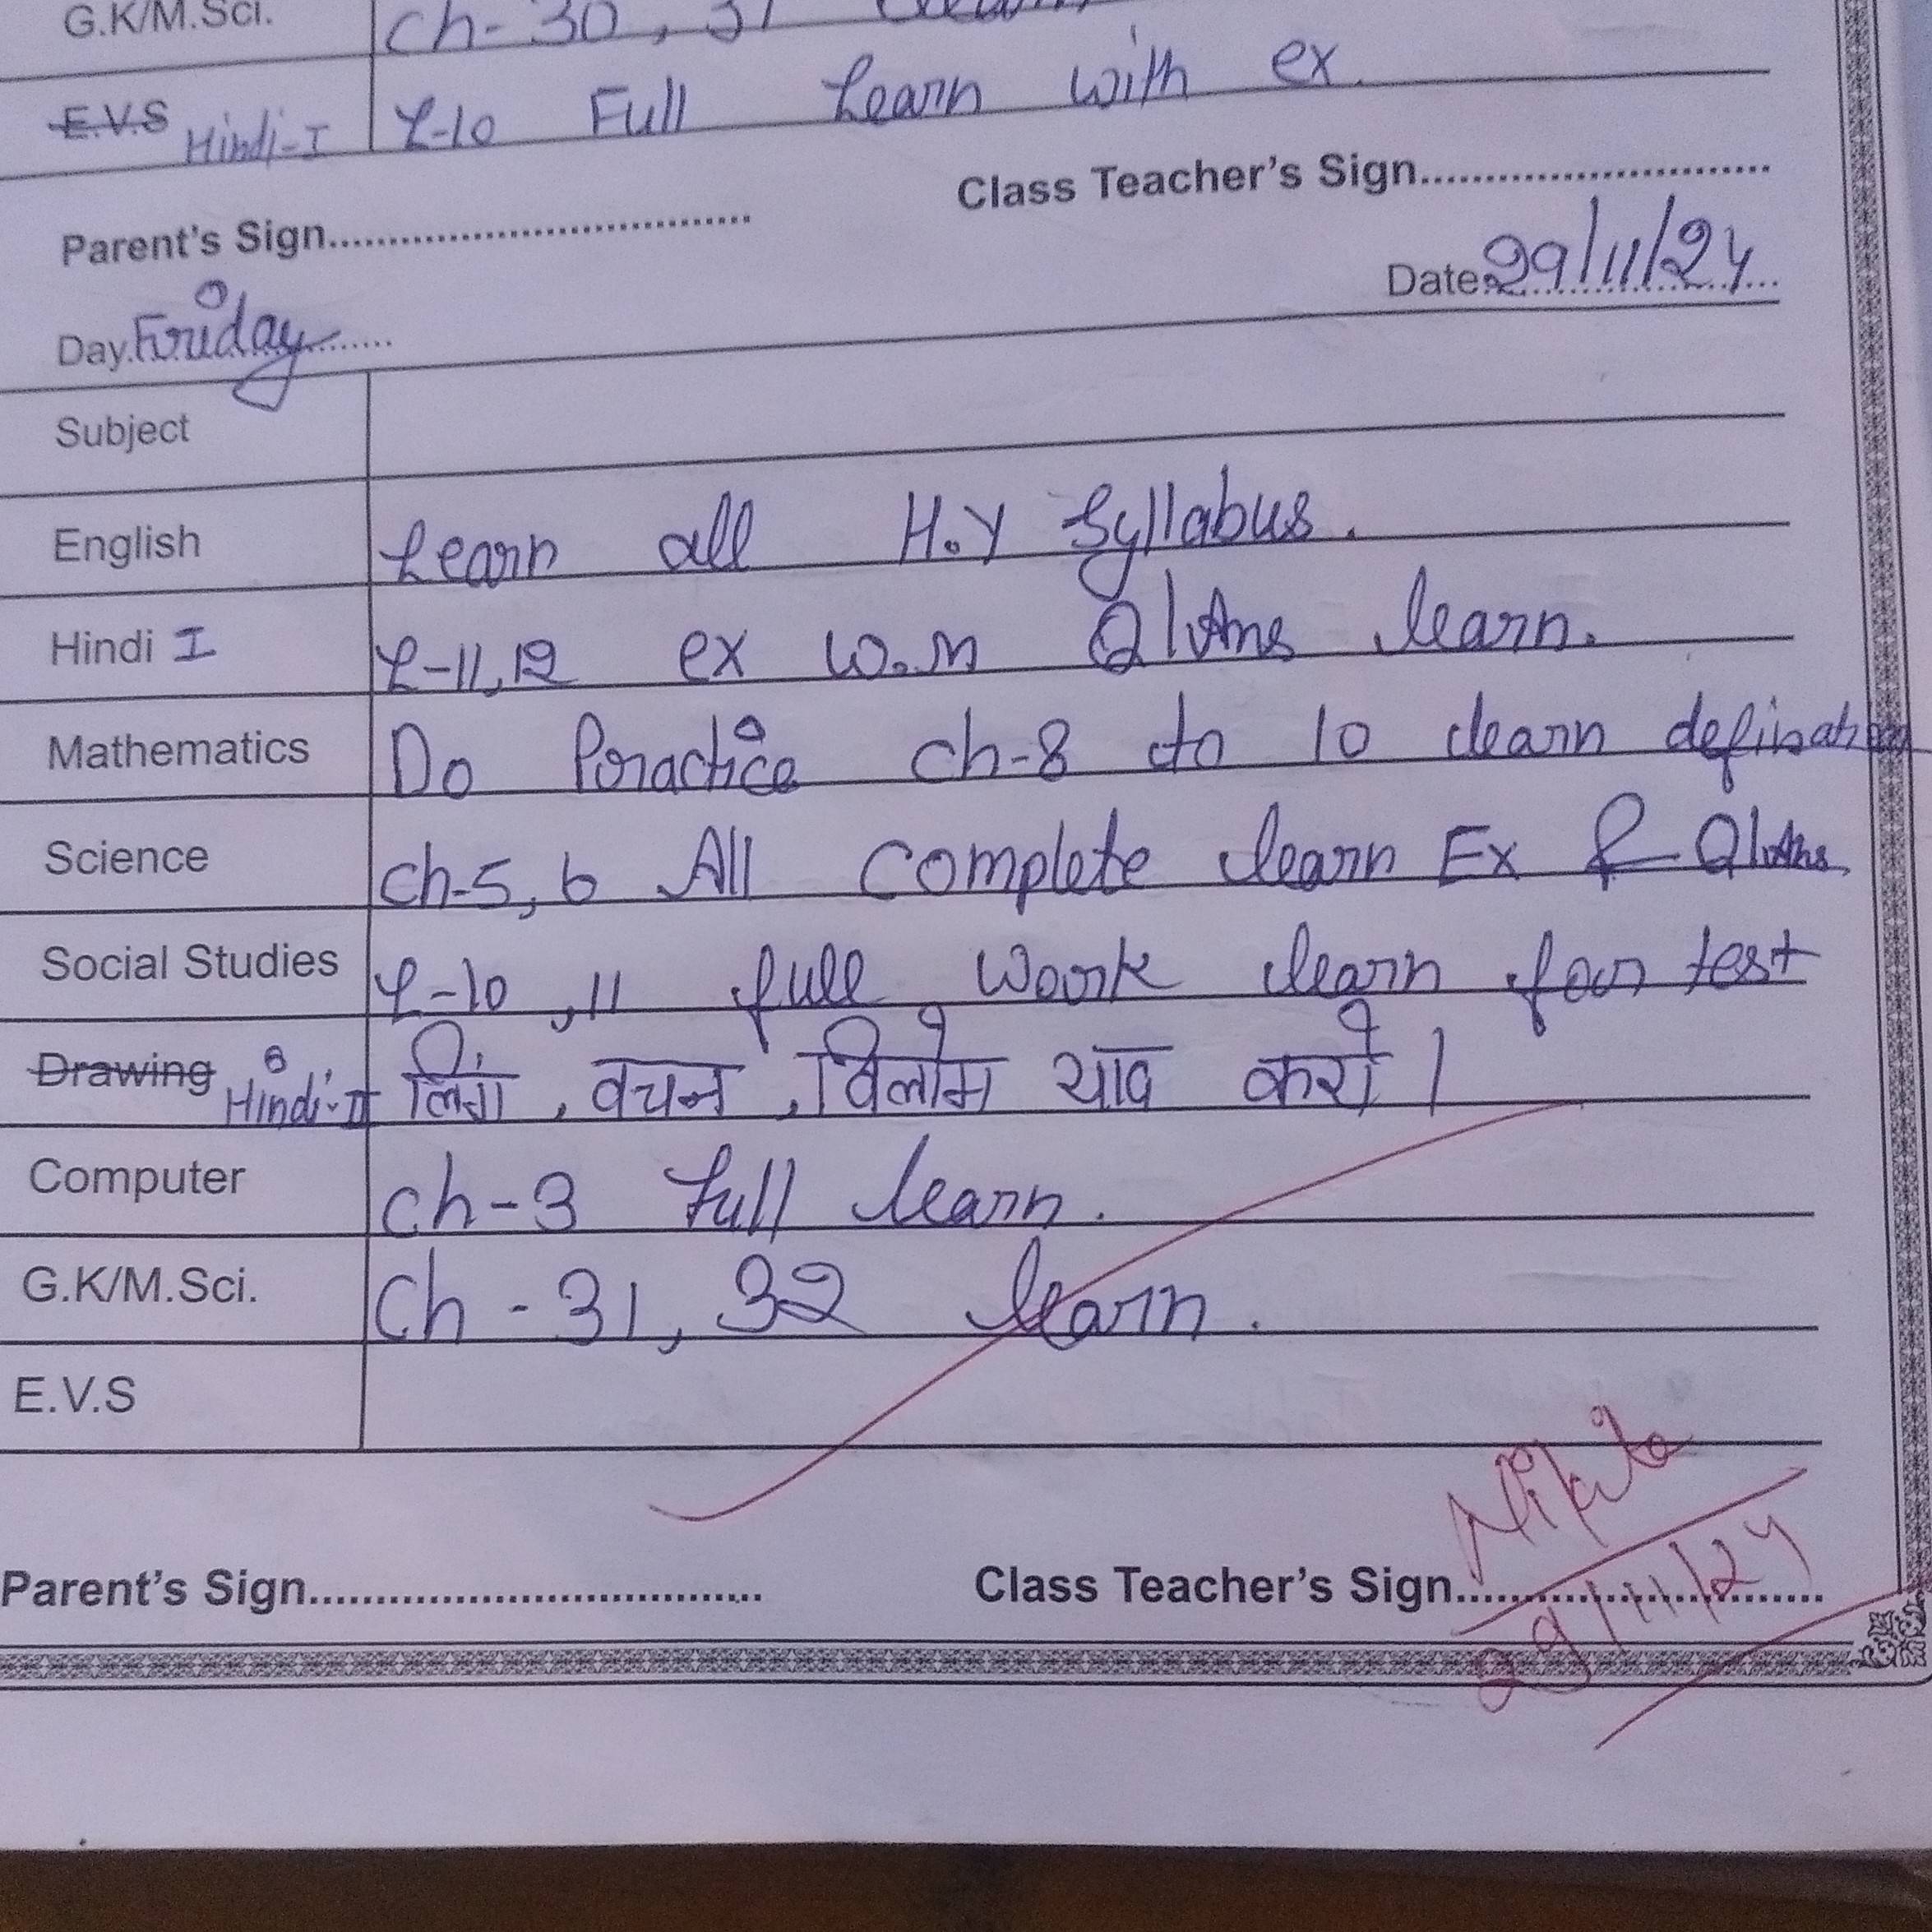 G.K/M.Sci. Ch- 30, 31
E.V.S Hindi-I L-10 Full Learn with ex.
Parent's Sign........ Class Teacher's Sign........
Day. Friday Date 29/11/24
Subject
English Learn all H.Y Syllabus.
Hindi I L-11,12 ex w.m Q/Ans learn.
Mathematics Do Practice Ch-8 to 10 learn defination
Science Ch-5, 6 All Complete learn Ex & Q/Ans
Social Studies L-10, 11 full work learn for test
Drawing Hindi-II लिंग, वचन, विलोम याद करो।
Computer Ch-3 full learn.
G.K/M.Sci. Ch-31, 32 learn.
E.V.S
Parent's Sign........ Class Teacher's Sign........ Nikita
29/11/24